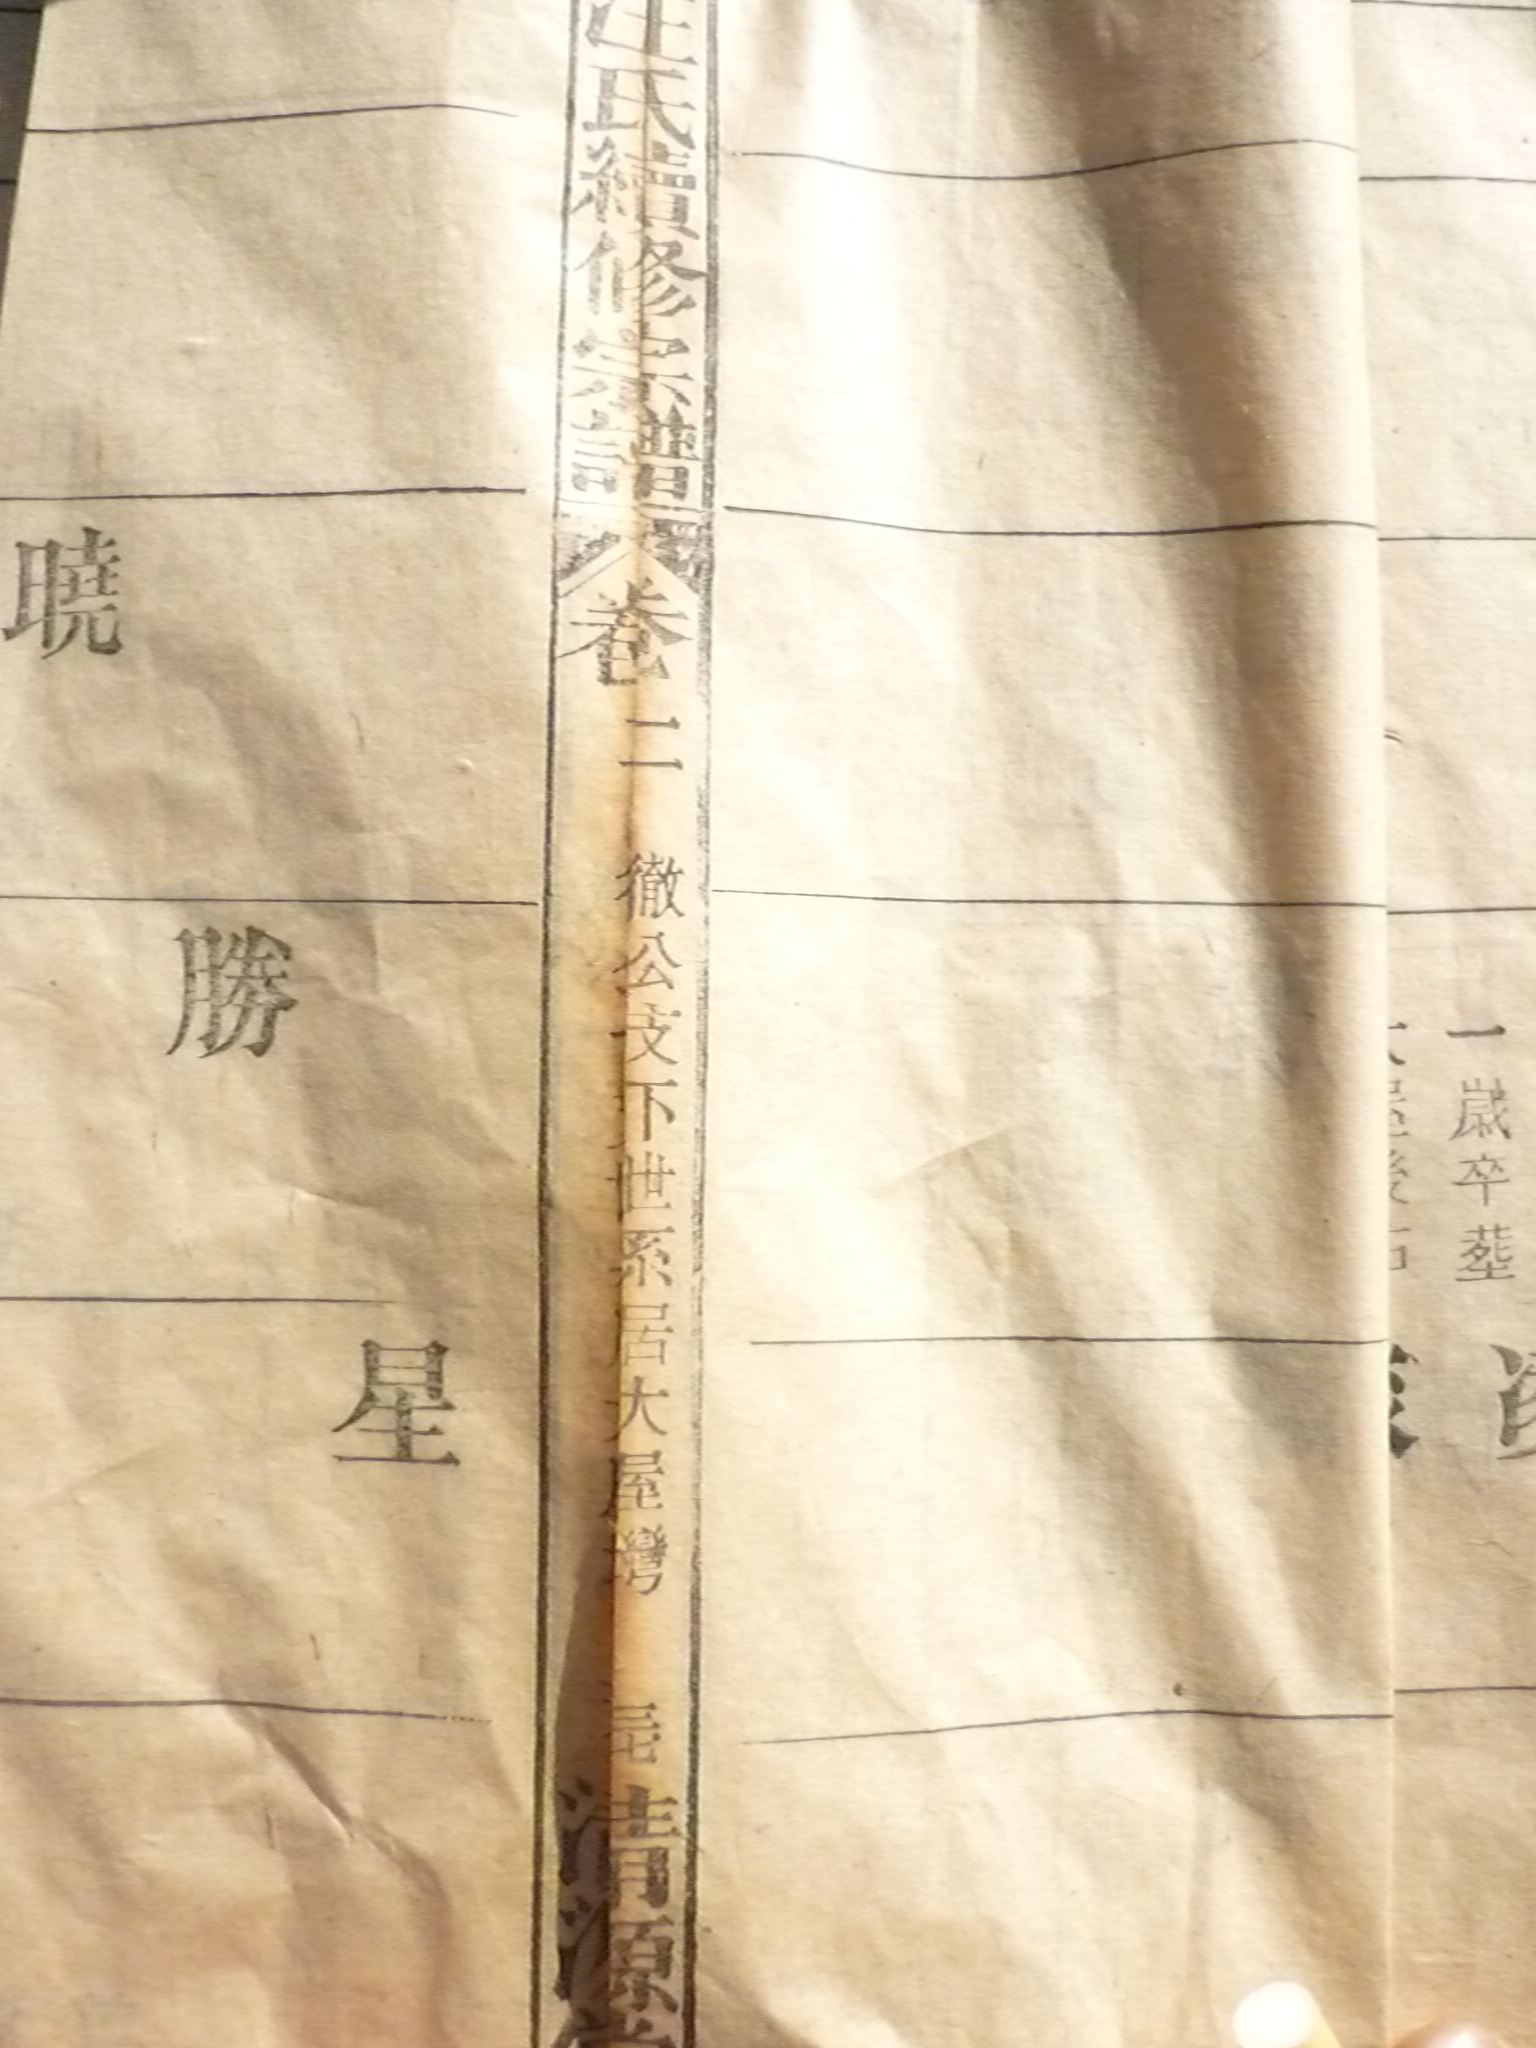 一歲卒塟
氏續修宗譜
卷二
徹公支下世系居大屋灣
三七
清源
星
勝
曉